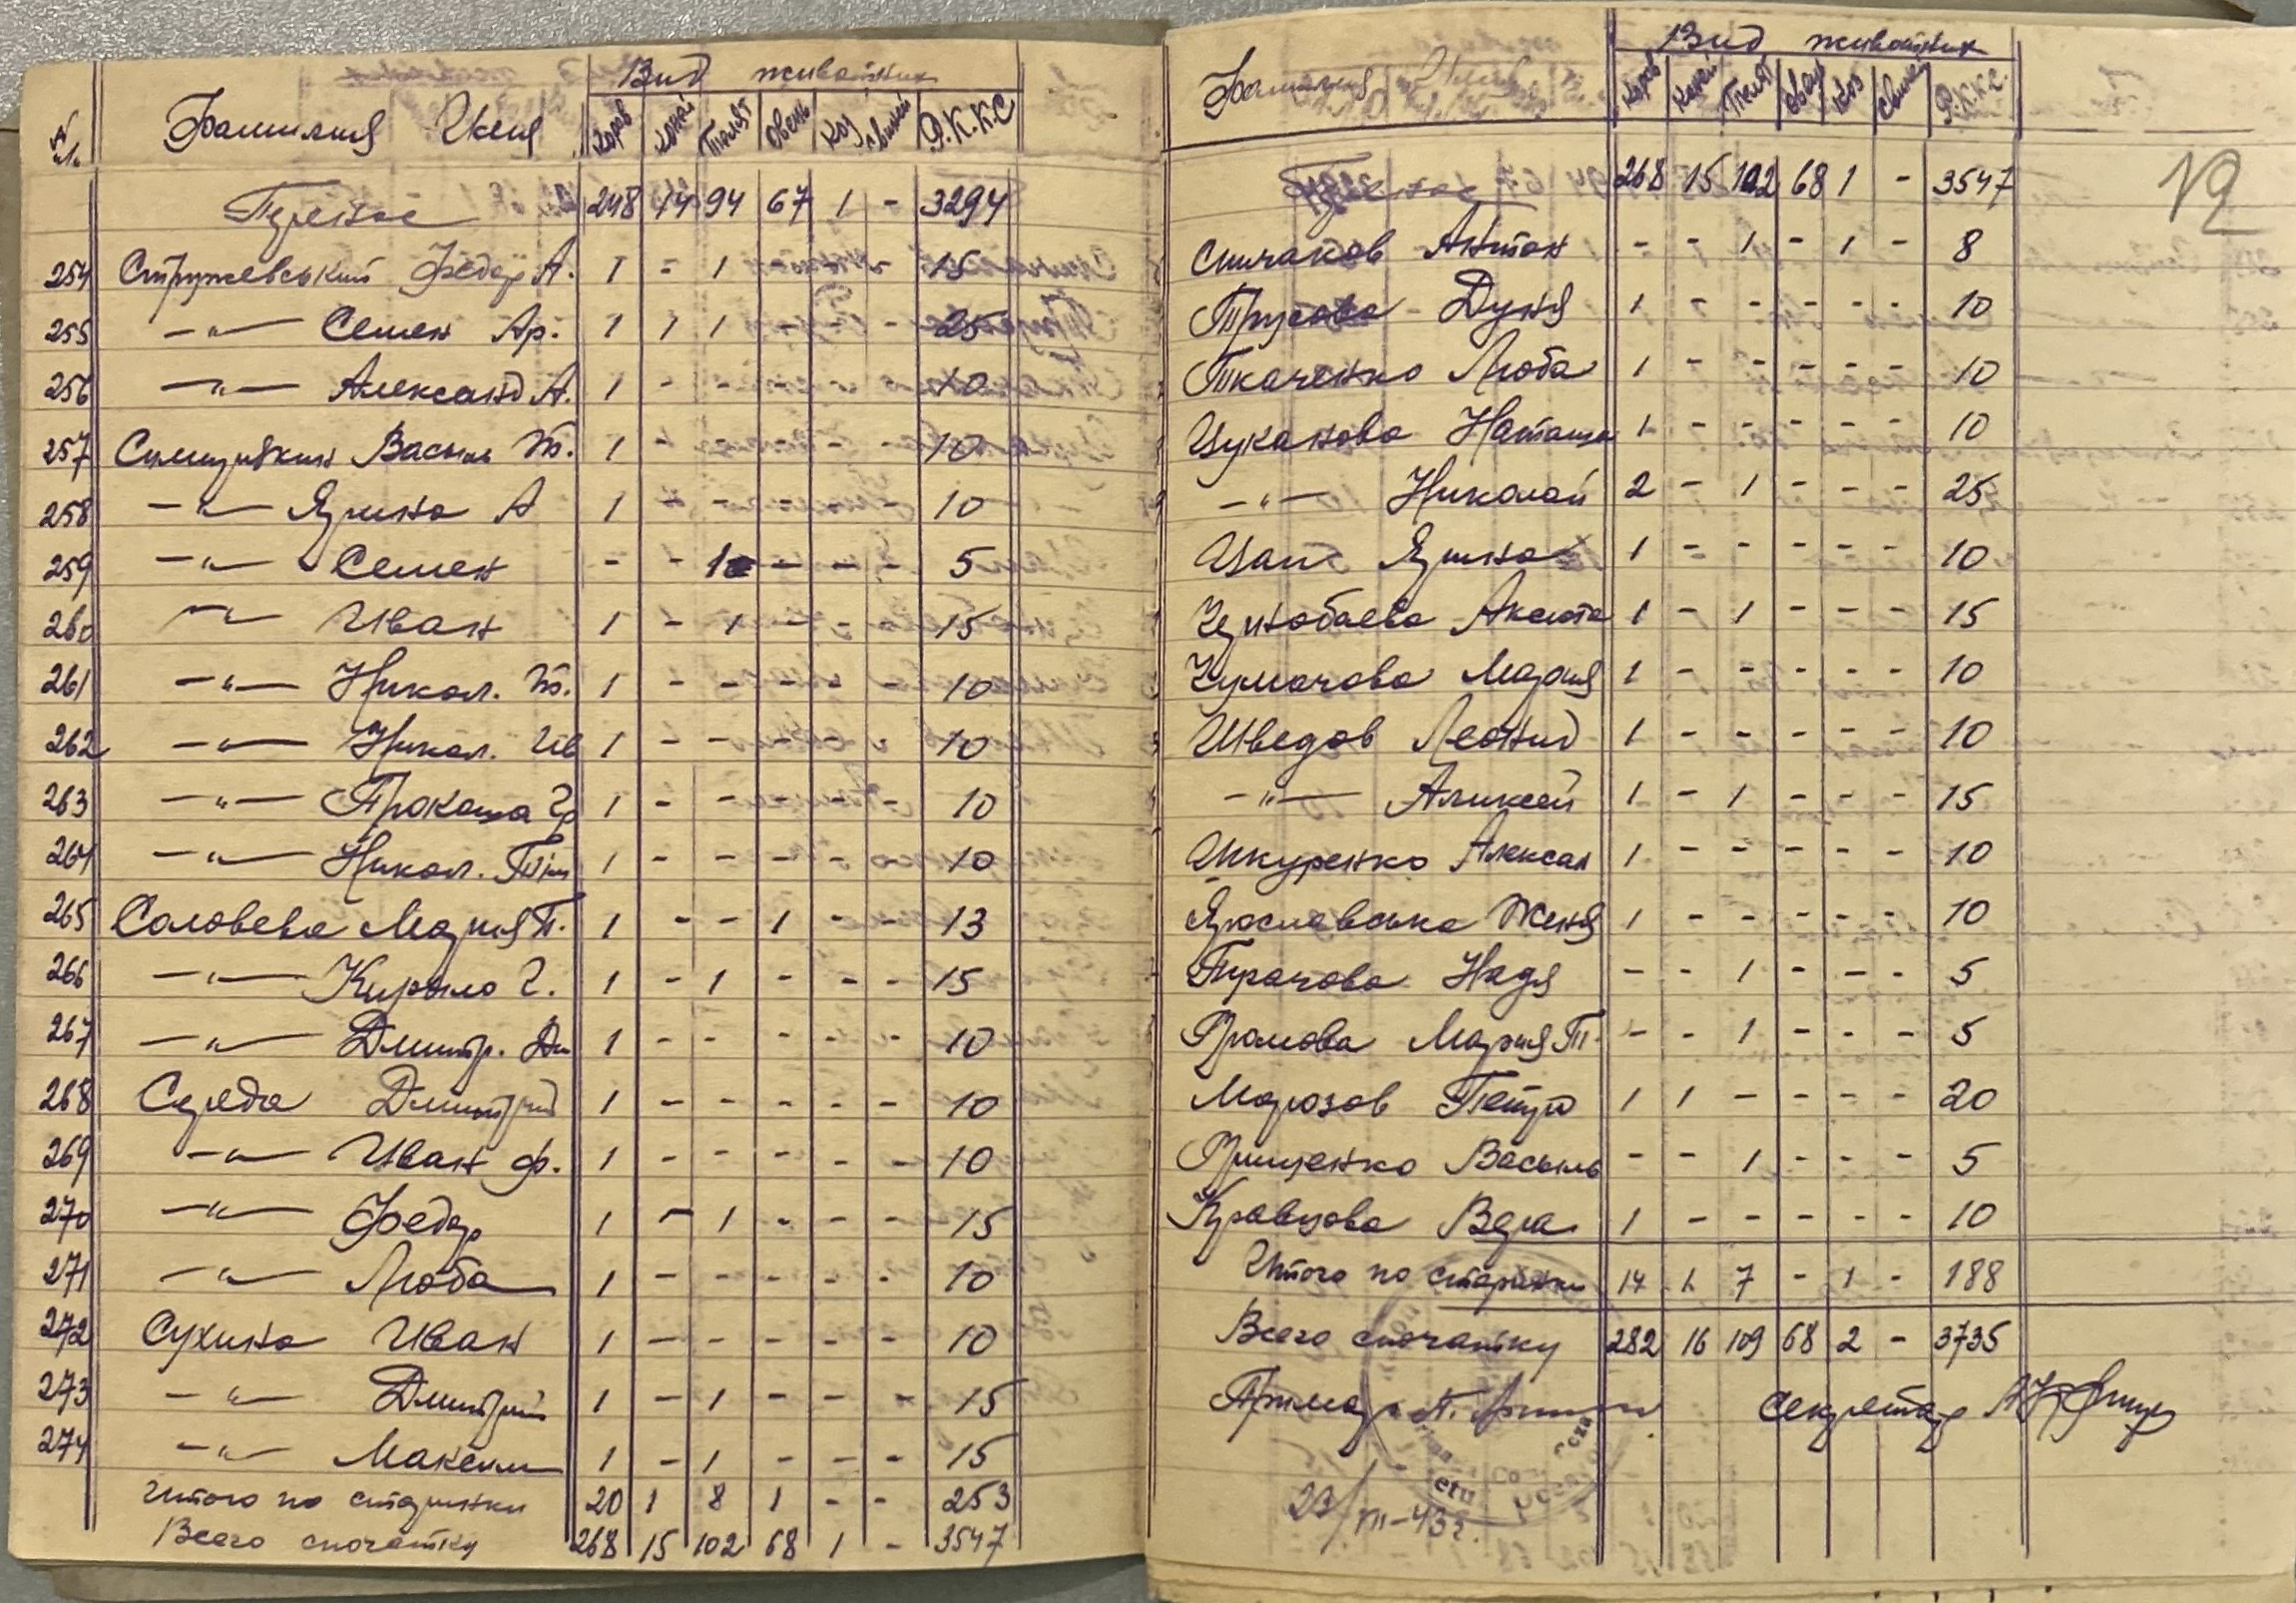 Вид животных
№ Фамилия Имя Коров Коней Телят Овець Коз Свиней Р.К.К.С
Перенос 248 14 94 67 1 - 3294
254 Стружевський Федор А. 1 - 1 - - - 15
255 -"- Семен Ар. 1 1 1 - - - 25
256 -"- Александ А. 1 - - - - - 10
257 Васыль 1 - - - - - 10
258 -"- Ярина А 1 - - - - - 10
259 -"- Семен - - 1 - - - 5
260 -"- Иван 1 - 1 - - - 15
261 -"- Никол. 1 - - - - - 10
262 -"- Никол. Ив 1 - - - - - 10
263 -"- 1 - - - - - 10
264 -"- Никол. Тим 1 - - - - - 10
265 Соловева Мария П. 1 - - 1 - - 13
266 -"- Кирыло Г. 1 - 1 - - - 15
267 -"- Дмитр. Дм 1 - - - - - 10
268 Середа Дмитрий 1 - - - - - 10
269 -"- Иван Ф. 1 - - - - - 10
270 -"- Федор 1 - 1 - - - 15
271 -"- Люба 1 - - - - - 10
272 Сухина Иван 1 - - - - - 10
273 -"- Дмитрий 1 - 1 - - - 15
274 -"- Максим 1 - 1 - - - 15
Итого по старинки 20 1 8 1 - - 253
Всего спочатку 268 15 102 68 1 - 3547
Вид животних
Фамилия Имя Коров Коней Телят Овец Коз Свиней Р.К.К.С.
Перенос 268 15 102 68 1 - 3547
12
Спичаков Антон - - 1 - 1 - 8
Трусова Дуня 1 - - - - - 10
Ткаченко Люба 1 - - - - - 10
Цуканова Наташа 1 - - - - - 10
-"- Николай 2 - 1 - - - 25
Цапс Ярина 1 - - - - - 10
Чернобаева Аксюта 1 - 1 - - - 15
Чумачова Мария 1 - - - - - 10
Шведов Леонид 1 - - - - - 10
-"- Аликсей 1 - 1 - - - 15
Шкуренко Алексан 1 - - - - - 10
Ярославська Женя 1 - - - - - 10
Надя - - 1 - - - 5
Громова Мария П. - - 1 - - - 5
Морозов Петро 1 1 - - - - 20
Грищенко Васыль - - 1 - - - 5
Кравцова Вера 1 - - - - - 10
Итого по старинки 14 1 7 - 1 - 188
Всего спочатку 282 16 109 68 2 - 3735
Примар Секретар
23/VII-43г.